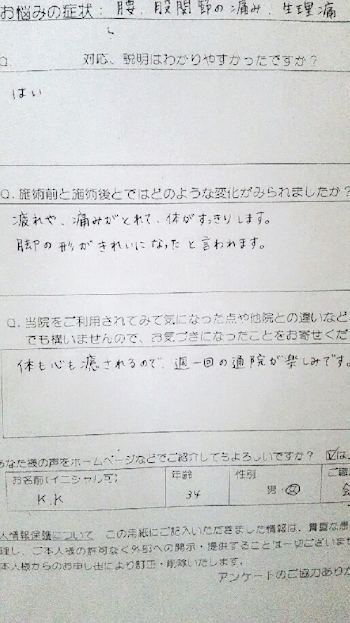 お悩みの症状: 腰、股関節の痛み、生理痛
Q. 対応、説明はわかりやすかったですか?
はい
Q. 施術前と施術後とではどのような変化がみられましたか?
疲れや、痛みがとれて、体がすっきりします。
脚の形がきれいになったと言われます。
Q. 当院をご利用されてみて気になった点や他院との違いなど
でも構いませんので、お気づきになったことをお寄せくだ
体も心も癒されるので、週一回の通院が楽しみです。
あなた様の声をホームページなどでご紹介してもよろしいですか? は
お名前(イニシャル可) 年齢 性別 ご職
K.K 34 男・女 会
人情報保護について この用紙にご記入いただきました情報は、貴重な患
理し、ご本人様の許可なく外部への開示・提供することは一切ございませ
本人様からのお申し出により訂正・削除いたします。
アンケートのご協力あり